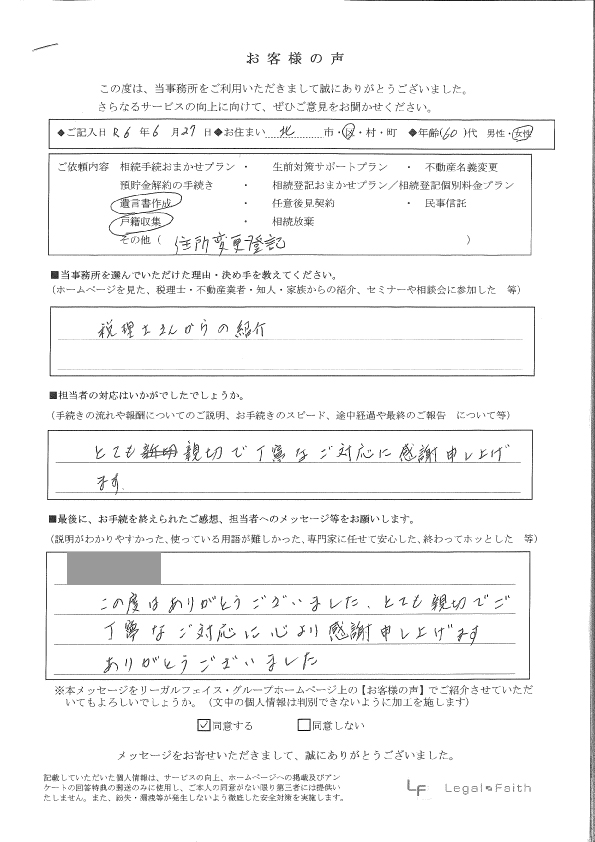 お客様の声
この度は、当事務所をご利用いただきまして誠にありがとうございました。
さらなるサービスの向上に向けて、ぜひご意見をお聞かせください。
◆ご記入日 R6 年 6 月 27 日◆お住まい 北 市・区・村・町 ◆年齢(60)代 男性・女性
ご依頼内容 相続手続おまかせプラン ・ 生前対策サポートプラン ・ 不動産名義変更
預貯金解約の手続き ・ 相続登記おまかせプラン／相続登記個別料金プラン
遺言書作成 ・ 任意後見契約 ・ 民事信託
戸籍収集 ・ 相続放棄
その他（ 住所変更登記 ）
■当事務所を選んでいただけた理由・決め手を教えてください。
（ホームページを見た、税理士・不動産業者・知人・家族からの紹介、セミナーや相談会に参加した 等）
税理士さんからの紹介
■担当者の対応はいかがでしたでしょうか。
（手続きの流れや報酬についてのご説明、お手続きのスピード、途中経過や最終のご報告 について等）
とても親切で丁寧なご対応に感謝申し上げ
ます.
■最後に、お手続を終えられたご感想、担当者へのメッセージ等をお願いします。
（説明がわかりやすかった、使っている用語が難しかった、専門家に任せて安心した、終わってホッとした 等）
この度はありがとうございました、とても親切でご
丁寧なご対応に心より感謝申し上げます
ありがとうございました
※本メッセージをリーガルフェイス・グループホームページ上の【お客様の声】でご紹介させていただ
いてもよろしいでしょうか。（文中の個人情報は判別できないように加工を施します）
☑同意する □同意しない
メッセージをお寄せいただきまして、誠にありがとうございました。
記載していただいた個人情報は、サービスの向上、ホームページへの掲載及びアン
ケートの回答特典の郵送のみに使用し、ご本人の同意がない限り第三者には提供い
たしません。また、紛失・漏洩等が発生しないよう徹底した安全対策を実施します。
LF Legal Faith